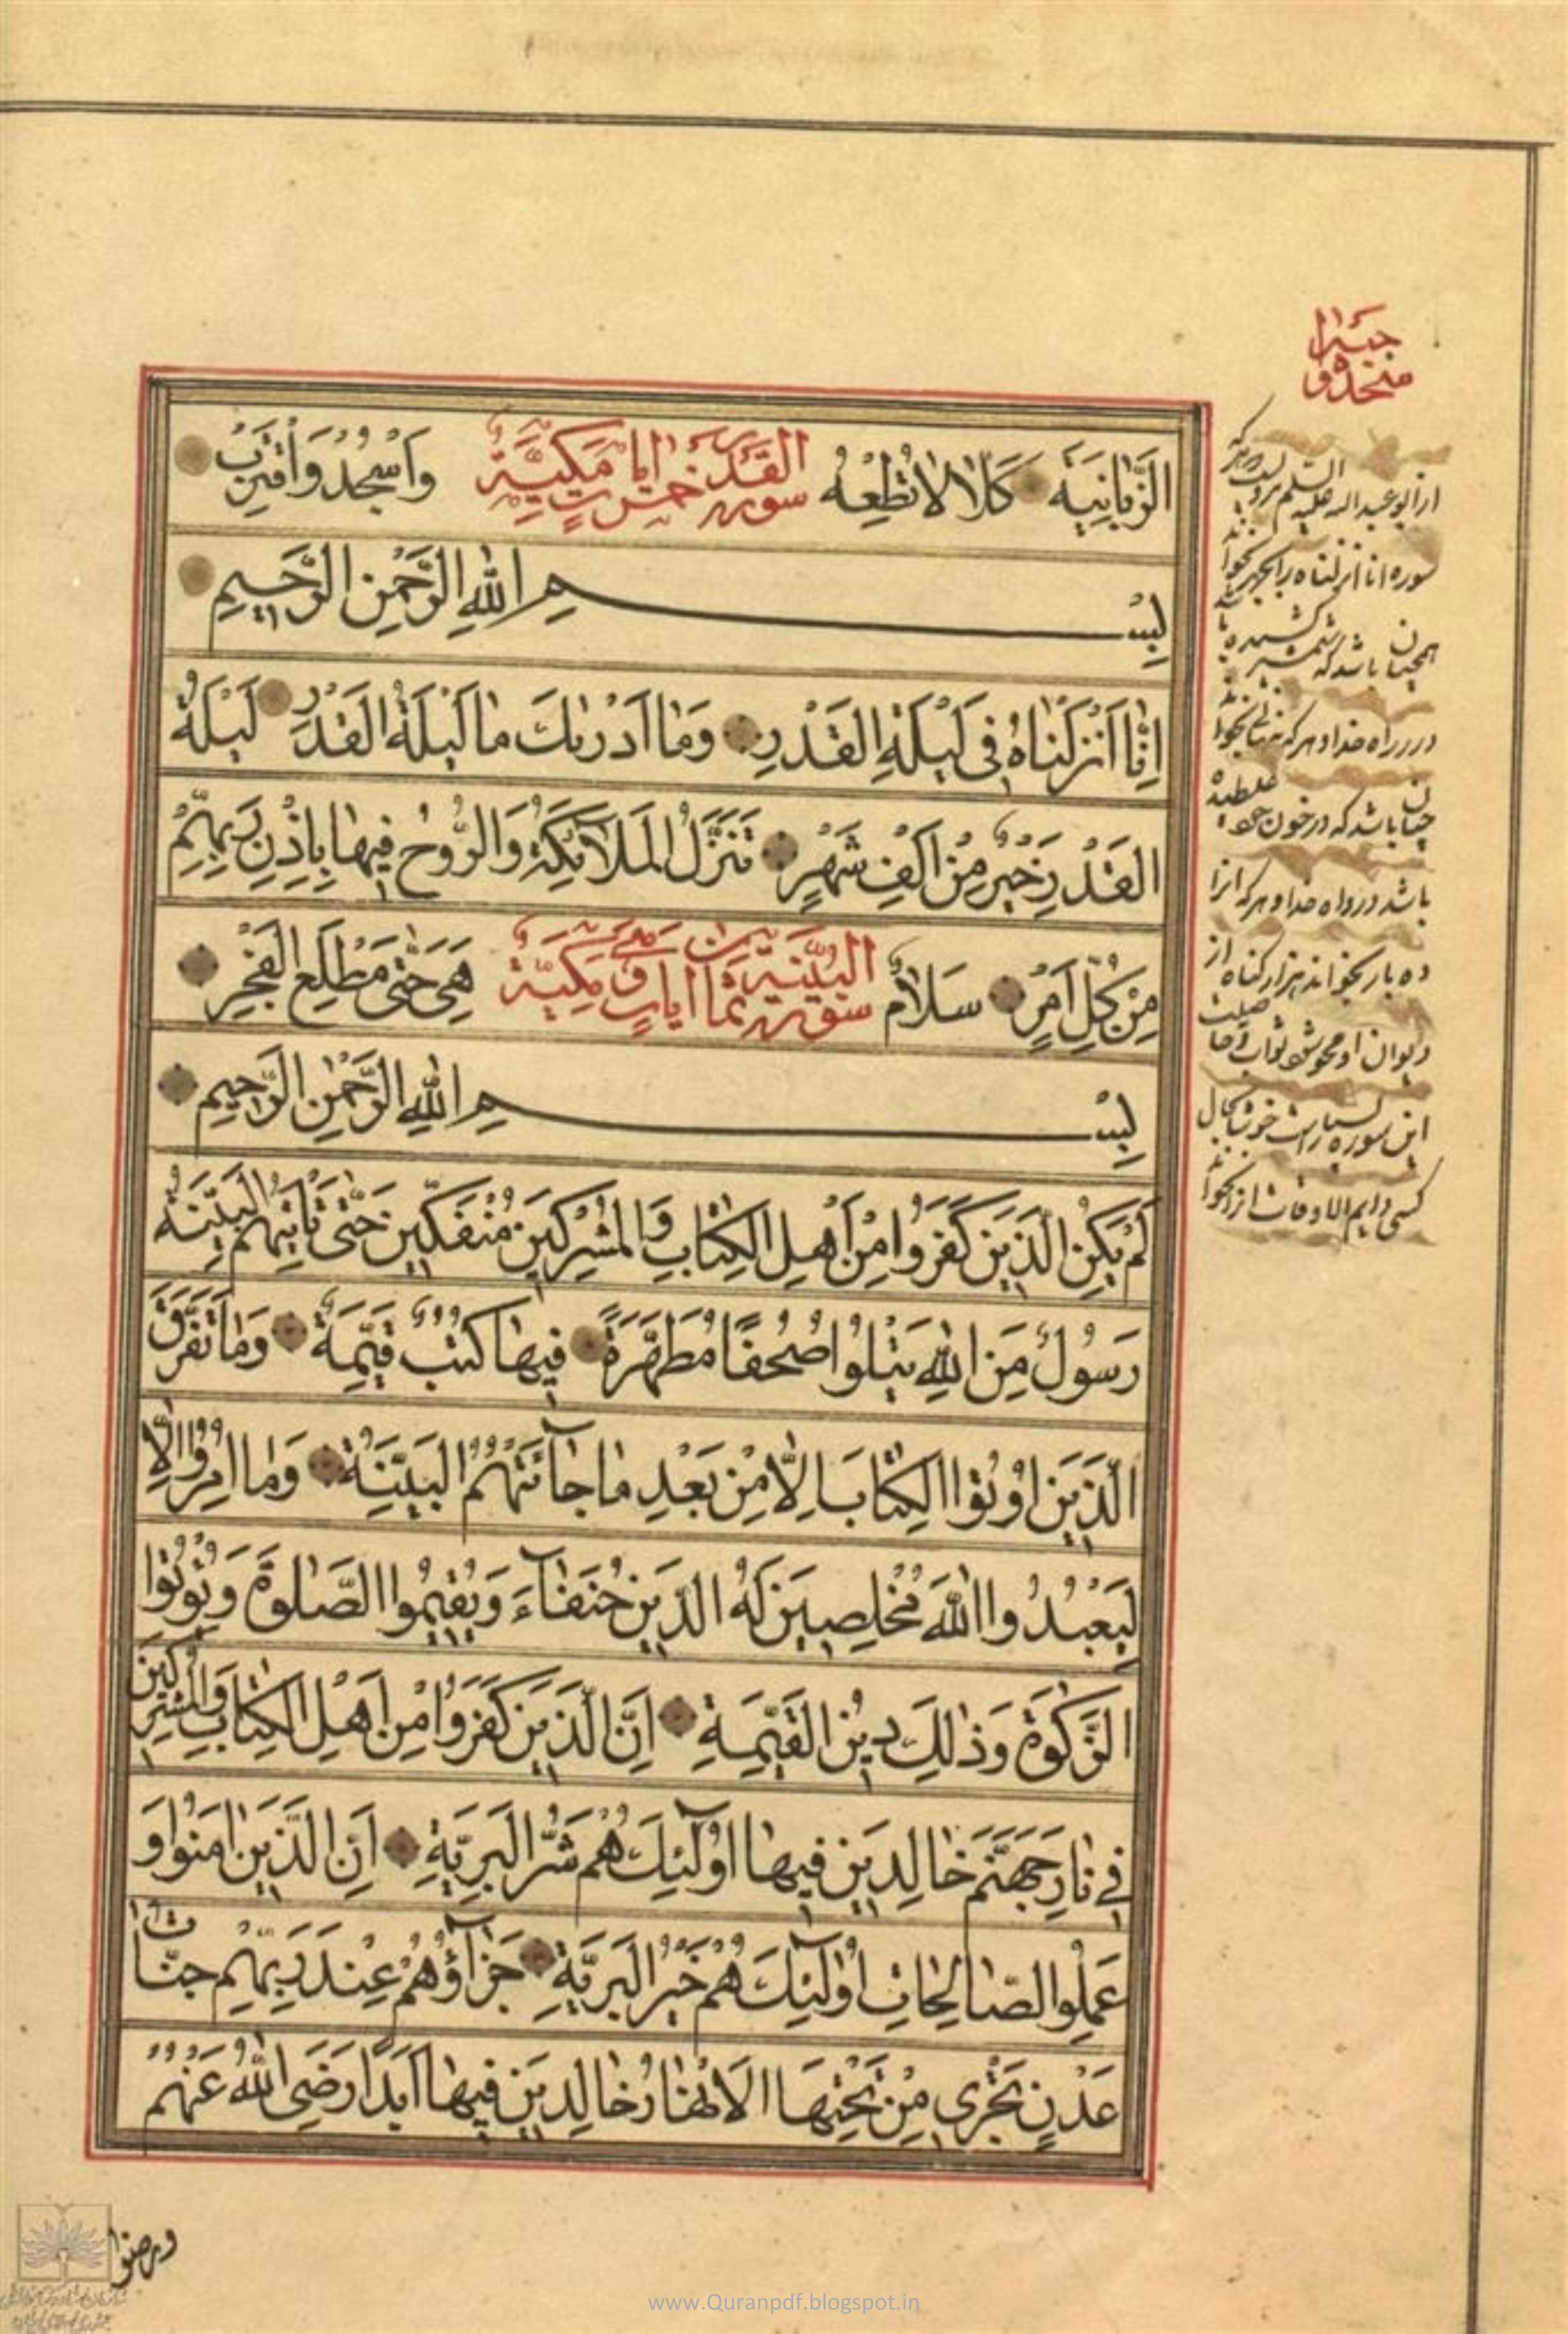 الزَّبَانِيَةَ كَلَّا لَا تُطِعْهُ سورة القدر خمس آیات مکیّة وَاسْجُدْ وَاقْتَرِبْ
بِسْمِ اللهِ الرَّحْمٰنِ الرَّحِيمِ
اِنَّا اَنْزَلْنَاهُ فِي لَيْلَةِ الْقَدْرِ وَمَا اَدْرٰىكَ مَا لَيْلَةُ الْقَدْرِ لَيْلَةُ
الْقَدْرِ خَيْرٌ مِنْ اَلْفِ شَهْرٍ تَنَزَّلُ الْمَلَآئِكَةُ وَالرُّوحُ فِيهَا بِاِذْنِ رَبِّهِمْ
مِنْ كُلِّ اَمْرٍ سَلَامٌ سورة البيّنة ثمان آیات مکیّة هِيَ حَتّٰى مَطْلَعِ الْفَجْرِ
بِسْمِ اللهِ الرَّحْمٰنِ الرَّحِيمِ
لَمْ يَكُنِ الَّذِينَ كَفَرُوا مِنْ اَهْلِ الْكِتَابِ وَالْمُشْرِكِينَ مُنْفَكِّينَ حَتّٰى تَاْتِيَهُمُ الْبَيِّنَةُ
رَسُولٌ مِنَ اللهِ يَتْلُوا صُحُفًا مُطَهَّرَةً فِيهَا كُتُبٌ قَيِّمَةٌ وَمَا تَفَرَّقَ
الَّذِينَ اُوتُوا الْكِتَابَ اِلَّا مِنْ بَعْدِ مَا جَآءَتْهُمُ الْبَيِّنَةُ وَمَا اُمِرُوا اِلَّا
لِيَعْبُدُوا اللهَ مُخْلِصِينَ لَهُ الدِّينَ حُنَفَآءَ وَيُقِيمُوا الصَّلٰوةَ وَيُؤْتُوا
الزَّكٰوةَ وَذٰلِكَ دِينُ الْقَيِّمَةِ اِنَّ الَّذِينَ كَفَرُوا مِنْ اَهْلِ الْكِتَابِ وَالْمُشْرِكِينَ
فِي نَارِ جَهَنَّمَ خَالِدِينَ فِيهَا اُولٰٓئِكَ هُمْ شَرُّ الْبَرِيَّةِ اِنَّ الَّذِينَ اٰمَنُوا وَ
عَمِلُوا الصَّالِحَاتِ اُولٰٓئِكَ هُمْ خَيْرُ الْبَرِيَّةِ جَزَآؤُهُمْ عِنْدَ رَبِّهِمْ جَنَّاتُ
عَدْنٍ تَجْرِي مِنْ تَحْتِهَا الْاَنْهَارُ خَالِدِينَ فِيهَا اَبَدًا رَضِيَ اللهُ عَنْهُمْ
ورضوا
از ابو عبدالله علیه السلم
سوره انا انزلناه را
همچنان باشد که شمشیر کشیده
در راه خدا و هر که
چنان باشد که در خون
باشد در راه خدا و هر که انرا
ده بار بخواند هزار گناه از
دیوان او محو شود ثواب و خاصیت
این سوره بسیارست
کسی دایم الاوقات
www.Quranpdf.blogspot.in